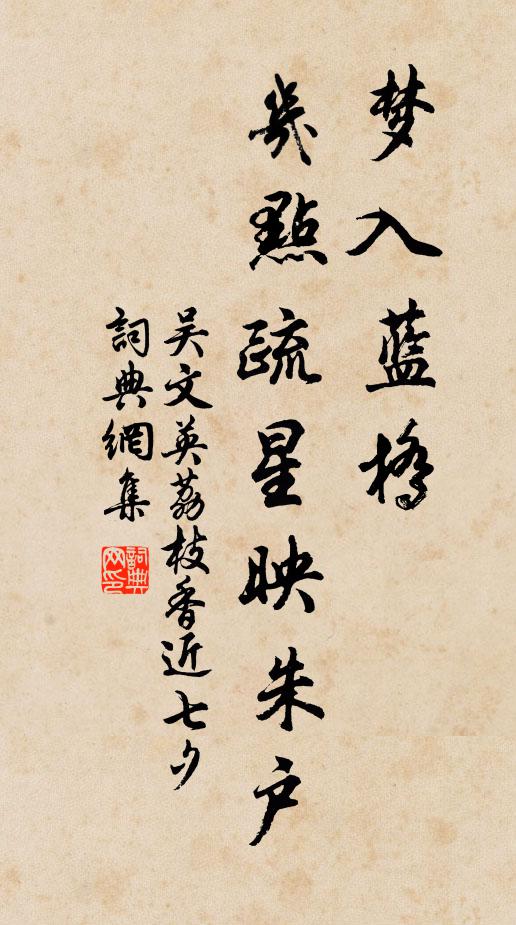 梦入蓝橋
幾點疏星映朱户
吴文英荔枝香近七夕
詞典網集
詞典网印